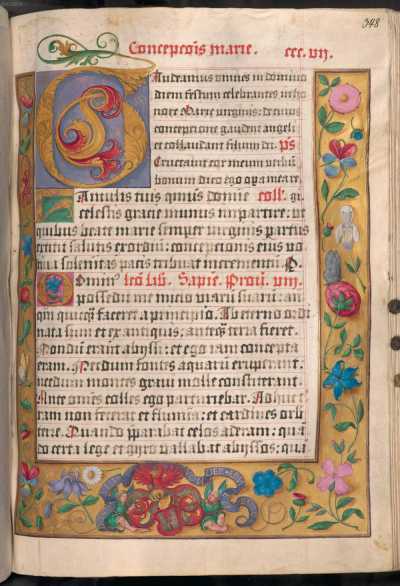 348
Concepcōis marie. ccc. vij.
Gaudeamus omnes in domino
diem festum celebrantes in ho
nore Marie virginis: de cuius
concepcione gaudent angeli:
et collaudant filium dei. ps
Eructauit cor meum verbū
bonum dico ego opa mea re.
Famulis tuis qūmus domine coll.
celestis gracie munus impartire: vt
quibus beate marie semper virginis partus
extitit salutis exordiū: concepcionis eius vo
tiua solenitas pacis tribuat incrementū. P.
Dominus Lcō lib. Sapie. Prou. viij.
possedit me inicio viarū suarū: an
teqm quicq̄ faceret a principio. Ab eterno ordi
nata sum et ex antiquis, anteq̄ terra fieret.
Nondū erant abyssi: et ego iam concepta
eram. Necdum fontes aquarū eruperant.
necdum montes graui mole constiterant.
Ante omnes colles ego parturiebar. Adhuc t
ram non fecerat et flumina: et cardines orbis
terre. Quando pparabat celos aderam: quā
do certa lege et giro vallabat abyssos: quā